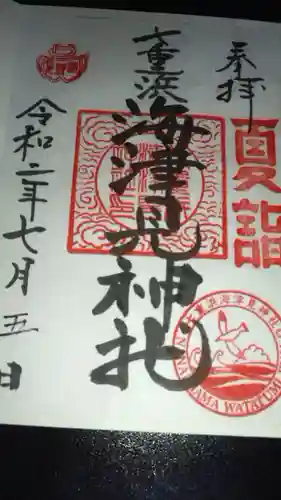 奉拝
夏詣
七重浜
海津見神社
令和二年七月五日
七重浜海津見神社